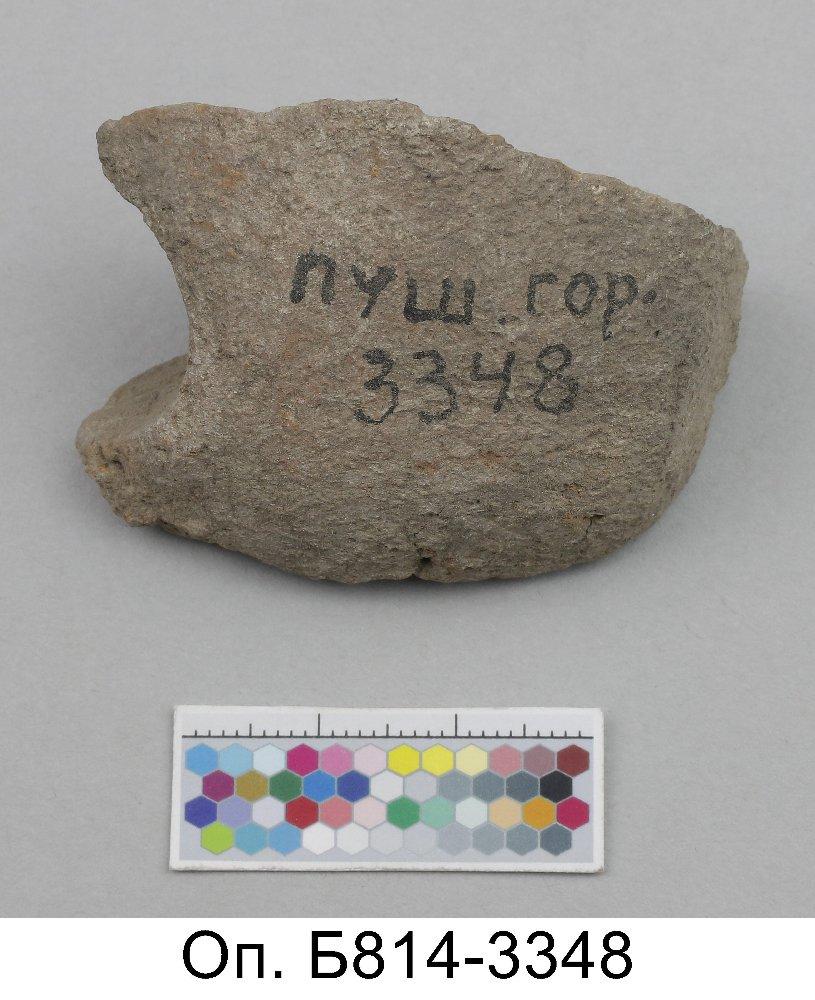 пуш. гор.
3348
Оп. Б814-3348